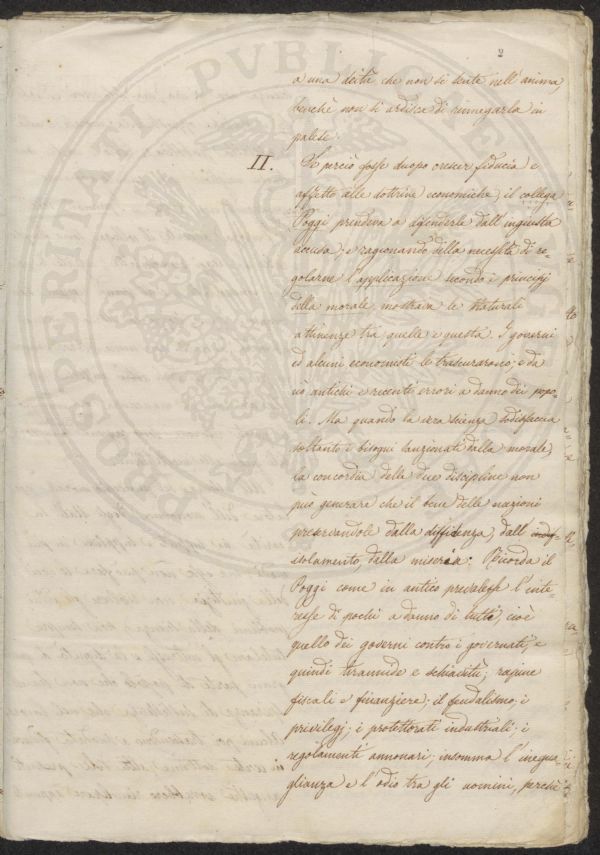 2
a una deità che non si sente nell'anima,
benchè non si ardisca di rinnegarla in
palese.
II. Se perciò fosse duopo crescer fiducia e
affetto alle dottrine economiche, il collega
Poggi prendeva a difenderle dall'ingiusta
accusa; e ragionando della necessità di re-
golarne l'applicazione secondo i principj
della morale, mostrava le naturali
attinenze tra quelle e questa. I governi
ed alcuni economisti le trascurarono; e da
ciò antichi e recenti errori a danno dei popo-
li. Ma quando la vera scienza sodisfaccia
soltanto i bisogni sanzionati dalla morale,
la concordia delle due discipline non
può generare che il bene delle nazioni
preservandole dalla diffidenza, dall'
isolamento, dalla miseria. Ricorda il
Poggi come in antico prevalesse l'inte-
resse di pochi a danno di tutti, cioè
quello dei governi contro i governati, e
quindi tirannide e schiavitù; rapine
fiscali e finanziere; il feudalismo; i
privilegj; i protettorati industriali; i
regolamenti annonari; insomma l'inegua-
glianza e l'odio tra gli uomini, perchè
PROSPERITATI PVBLICAE